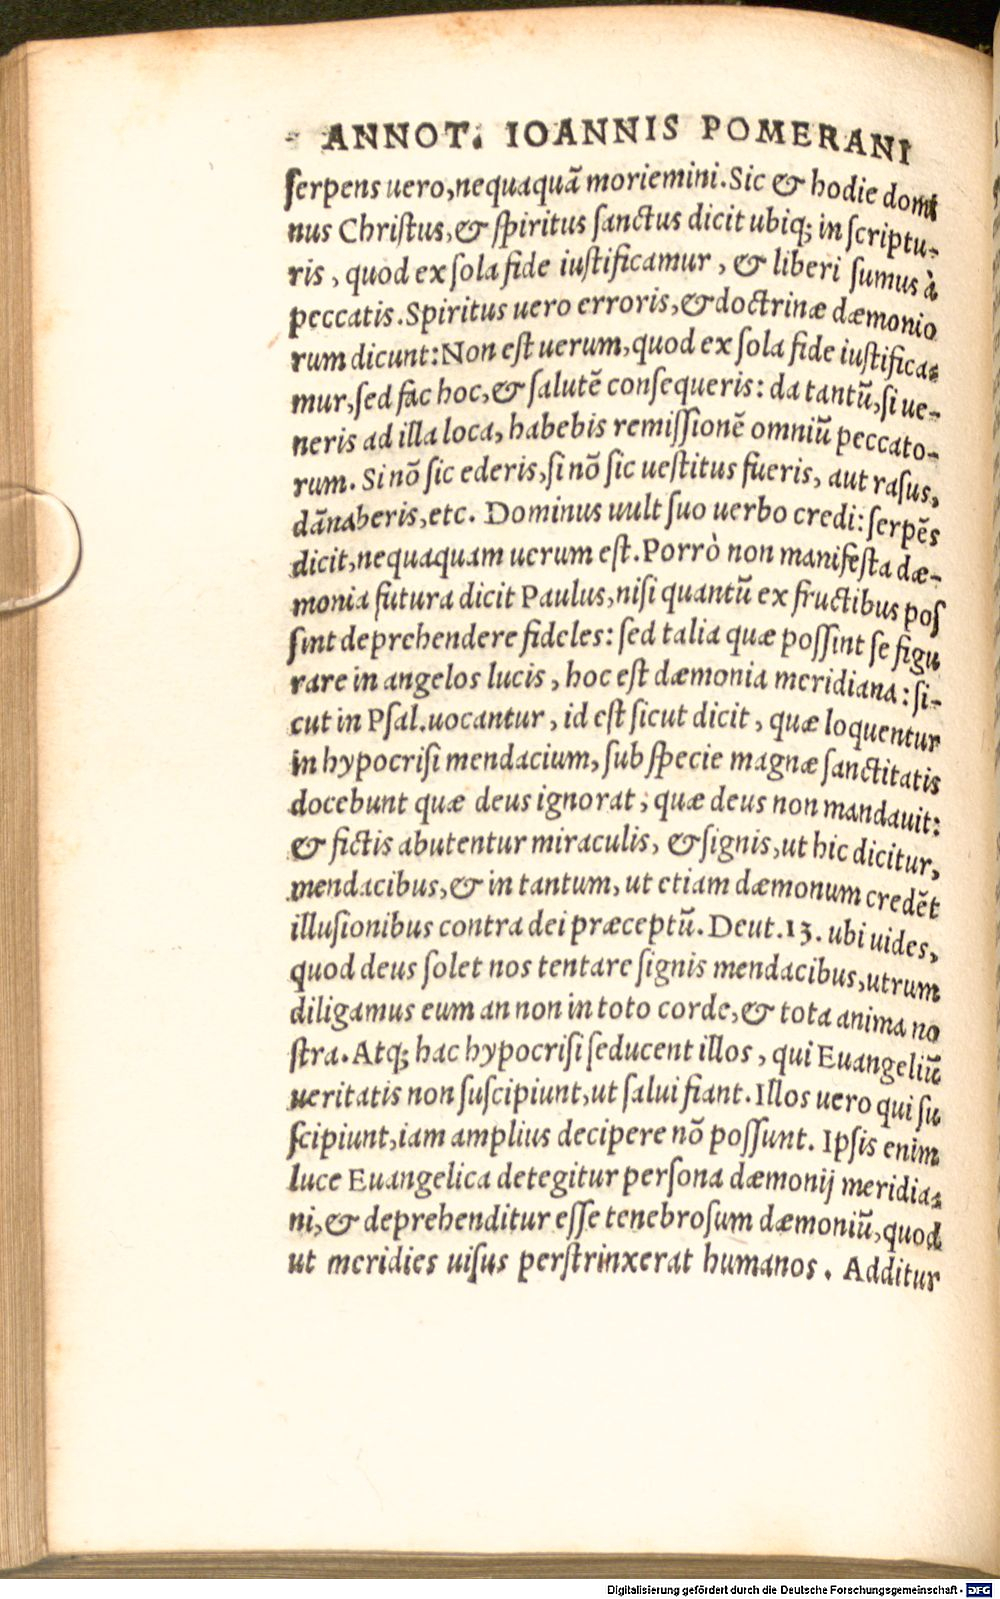 ANNOT. IOANNIS POMERANI
serpens uero,nequaquã moriemini.Sic & hodie domi
nus Christus,& spiritus sanctus dicit ubiq; in scriptu-
ris, quod ex sola fide iustificamur, & liberi sumus à
peccatis.Spiritus uero erroris,& doctrinæ dæmonio
rum dicunt:Non est uerum,quod ex sola fide iustifica-
mur,sed fac hoc,& salutẽ consequeris: da tantũ,si ue-
neris ad illa loca, habebis remissionẽ omniũ peccato-
rum. Si nõ sic ederis,si nõ sic uestitus fueris, aut rasus,
dãnaberis,etc. Dominus uult suo uerbo credi: serpẽs
dicit,nequaquam uerum est.Porrò non manifesta dæ-
monia futura dicit Paulus,nisi quantũ ex fructibus pos
sint deprehendere fideles: sed talia quæ possint se figu
rare in angelos lucis, hoc est dæmonia meridiana: si-
cut in Psal.uocantur, id est sicut dicit, quæ loquentur
in hypocrisi mendacium, sub specie magnæ sanctitatis
docebunt quæ deus ignorat, quæ deus non mandauit:
& fictis abutentur miraculis, & signis,ut hic dicitur,
mendacibus,& in tantum, ut etiam dæmonum credẽt
illusionibus contra dei præceptũ. Deut.13. ubi uides,
quod deus solet nos tentare signis mendacibus,utrum
diligamus eum an non in toto corde,& tota anima no
stra. Atq; hac hypocrisi seducent illos, qui Euangeliũ
ueritatis non suscipiunt,ut salui fiant. Illos uero qui su
scipiunt,iam amplius decipere nõ possunt. Ipsis enim
luce Euangelica detegitur persona dæmonij meridia-
ni,& deprehenditur esse tenebrosum dæmoniũ,quod
ut meridies uisus perstrinxerat humanos. Additur
Digitalisierung gefördert durch die Deutsche Forschungsgemeinschaft - DFG